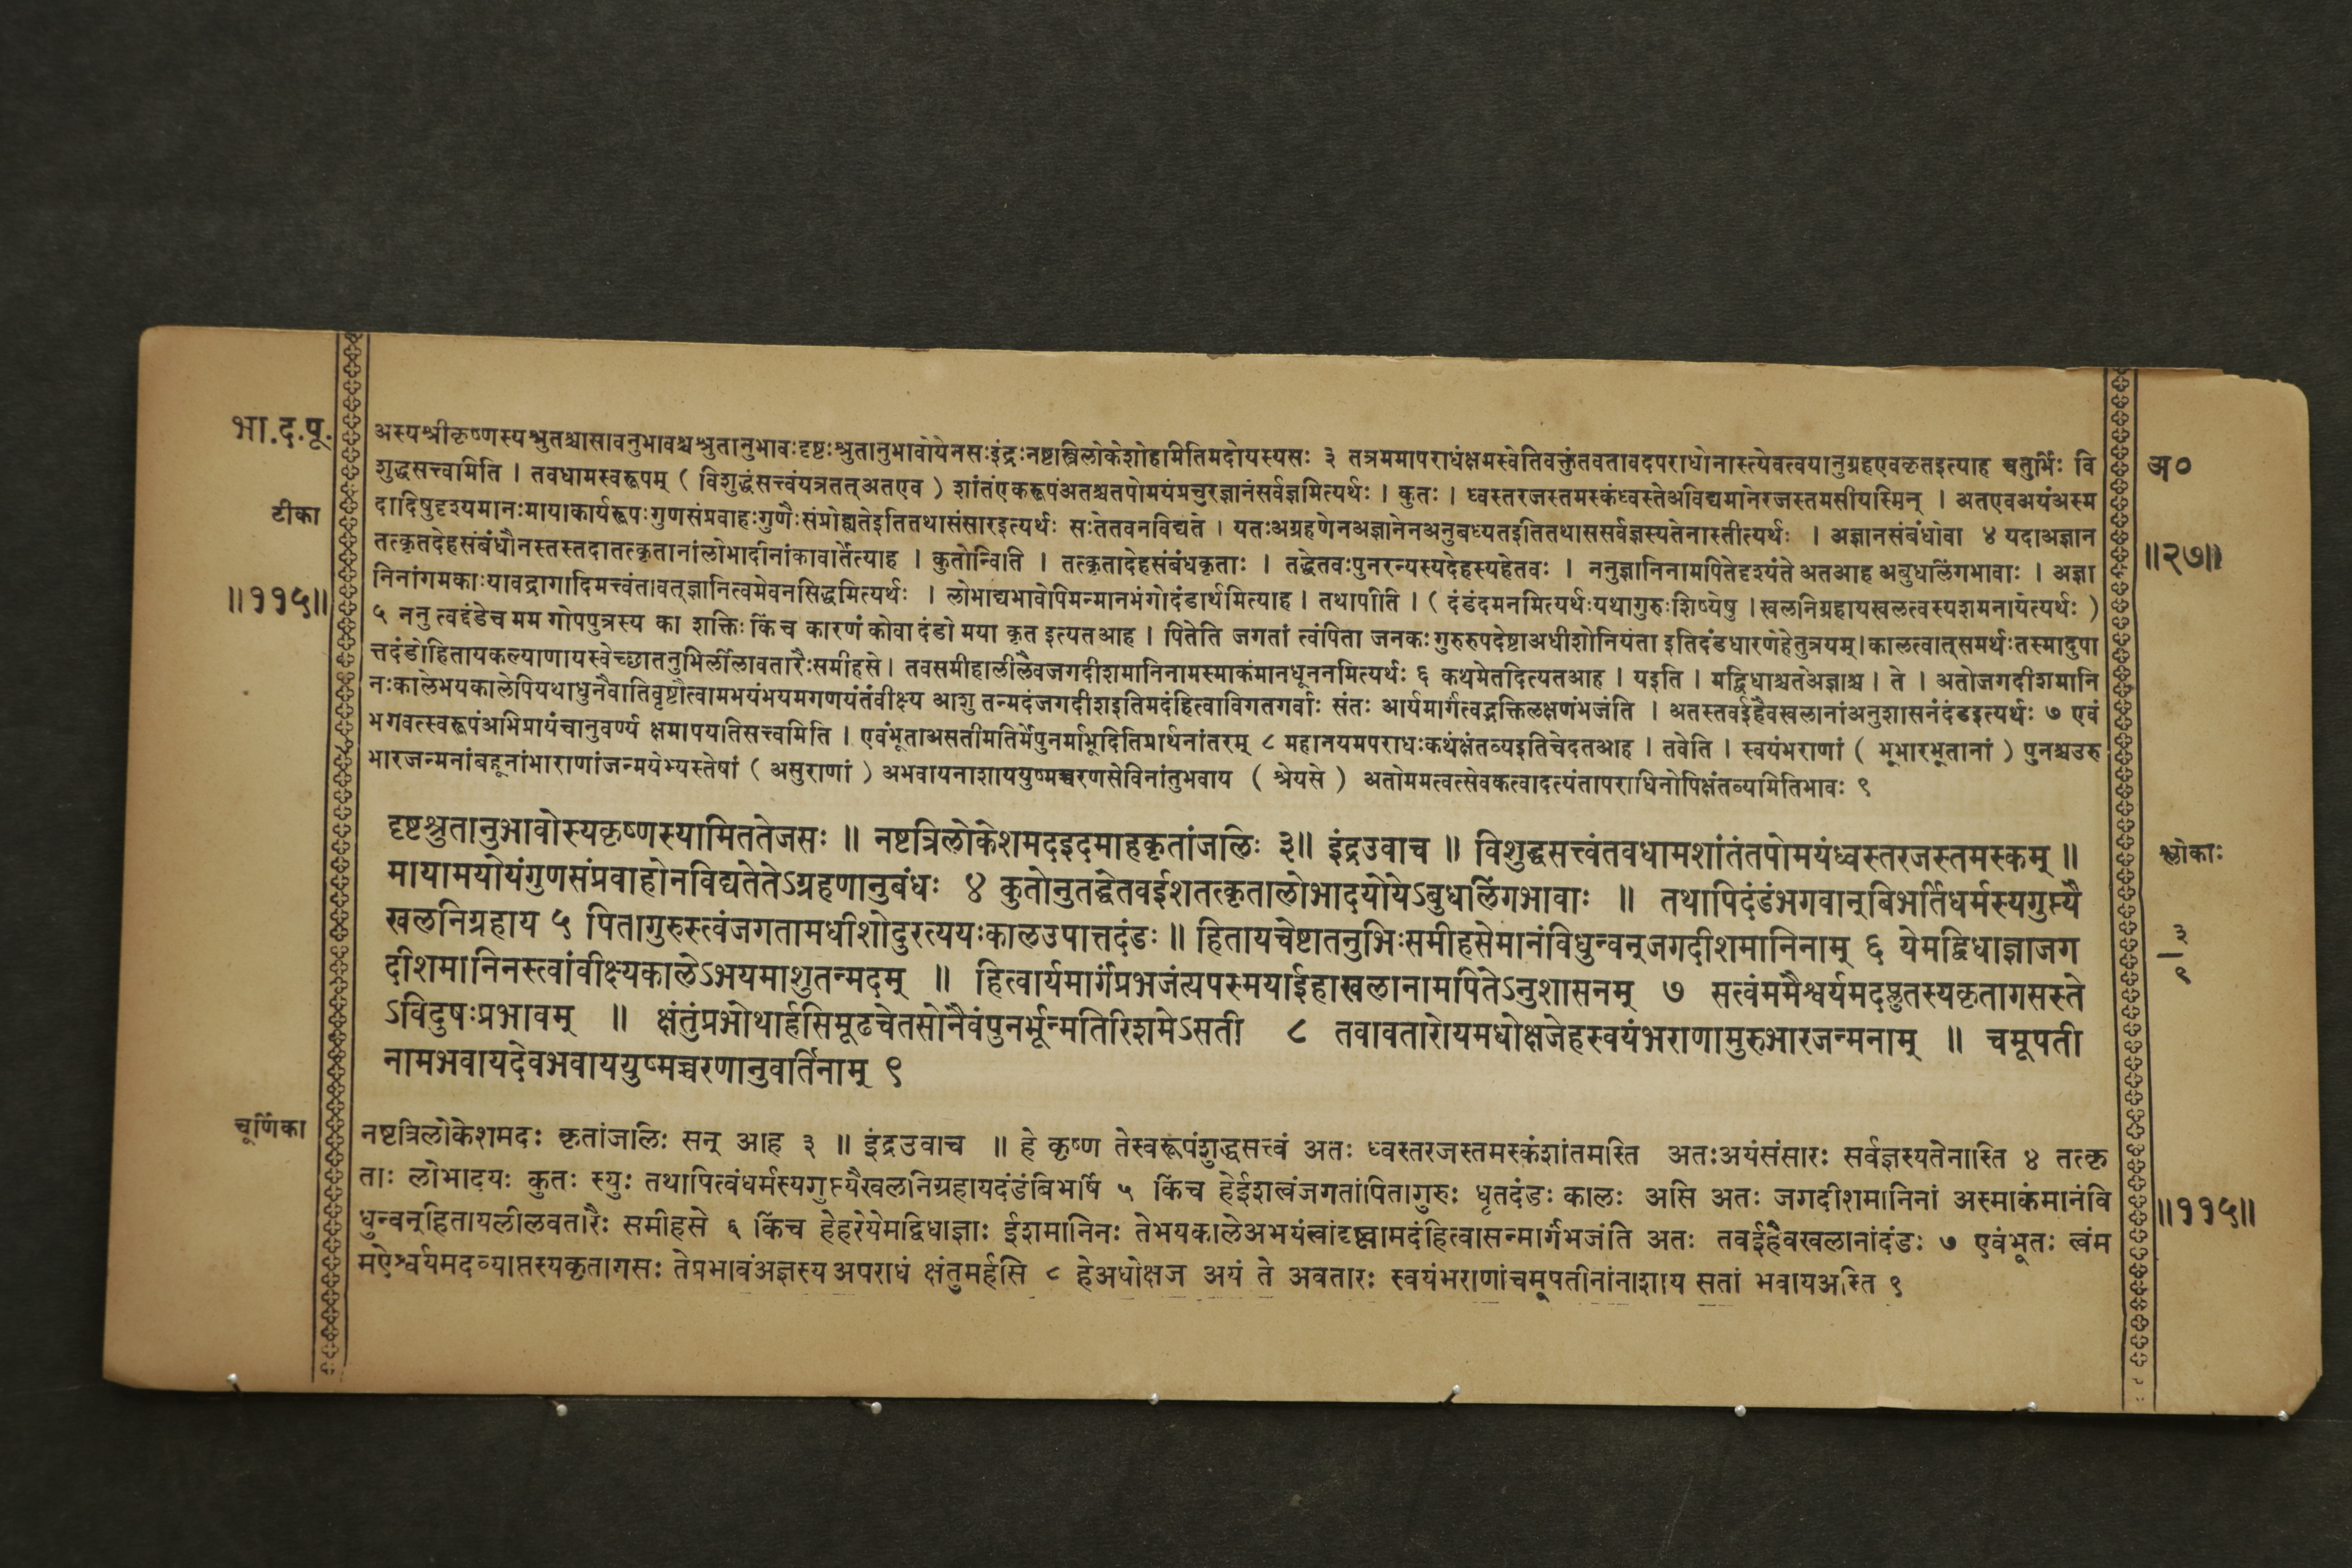 भा.द.पू.
टीका
॥११५॥
अस्यश्रीकृष्णस्यश्रुतश्चासावनुभावश्चश्रुतानुभावःदृष्टःश्रुतानुभावोयेनसःइंद्रःनष्टस्त्रिलोकेशोहामितिमदोयस्यसः ३ तत्रममापराधंक्षमस्वेतिवक्तुंतवतावदपराधोनास्त्येवत्वयानुग्रहएवकृतइत्याह चतुर्भिः वि
शुद्धसत्त्वामिति । तवधामस्वरूपम् ( विशुद्धंसत्त्वंयत्रतत् अतएव ) शांतंएकरूपंअतश्चतपोमयंप्रचुरज्ञानंसर्वज्ञमित्यर्थः । कुतः । ध्वस्तरजस्तमस्कंध्वस्तेअविद्यमानेरजस्तमसीयस्मिन् । अतएवअयंअस्म
दादिषुदृश्यमानःमायाकार्यरूपःगुणसंप्रवाहःगुणैःसंप्रोह्यतेइतितथासंसारइत्यर्थः सःतेतवनविद्यते । यतःअग्रहणेनअज्ञानेनअनुबध्यतइतितथाससर्वज्ञस्यतेनास्तीत्यर्थः । अज्ञानसंबंधोवा ४ यदाअज्ञान
तत्कृतदेहसंबंधौनस्तस्तदातत्कृतानांलोभादीनांकावार्तेत्याह । कुतोन्विति । तत्कृतादेहसंबंधकृताः । तद्धेतवःपुनरन्यस्यदेहस्यहेतवः । ननुज्ञानिनामपितेदृश्यंते अतआह अबुधलिंगभावाः । अज्ञा
निनांगमकाःयावद्रागादिमत्त्वंतावत्ज्ञानित्वमेवनसिद्धमित्यर्थः । लोभाद्यभावोपिमन्मानभंगोदंडार्थमित्याह । तथापीति । ( दंडंदमनमित्यर्थःयथागुरुःशिष्येषु । खलनिग्रहायखलत्वस्यशमनायेत्यर्थः )
५ ननु त्वद्दंडेच मम गोपपुत्रस्य का शक्तिः किंच कारणं कोवा दंडो मया कृत इत्यतआह । पितेति जगतां त्वंपिता जनकः गुरुरुपदेष्टाअधीशोनियंता इतिदंडधारणेहेतुत्रयम् । कालत्वात्समर्थःतस्मादुपा
त्तदंडोहितायकल्याणायस्वेच्छातनुभिर्लीलावतारैःसमीहसे । तवसमीहालीलैवजगदीशमानिनामस्माकंमानधूननमित्यर्थः ६ कथमेतदित्यतआह । यइति । मद्विधाश्चतेअज्ञाश्च । ते । अतोजगदीशमानि
नःकालेभयकालेपियथाधुनैवातिवृष्टौत्वामभयंभयमगणयंतंवीक्ष्य आशु तन्मदंजगदीशइतिमदंहित्वाविगतगर्वाः संतः आर्यमार्गंत्वद्भक्तिलक्षणंभजंति । अतस्तवईहैवखलानांअनुशासनंदंडइत्यर्थः ७ एवं
भगवत्स्वरूपंअभिप्रायंचानुवर्ण्य क्षमापयतिसत्त्वमिति । एवंभूताअसतीमतिर्मेपुनर्माभूदितिप्रार्थनांतरम् ८ महानयमपराधःकथंक्षंतव्यइतिचेदतआह । तवेति । स्वयंभराणां ( भूभारभूतानां ) पुनश्चउरु
भारजन्मनांबहूनांभाराणांजन्मयेभ्यस्तेषां ( असुराणां ) अभवायनाशाययुष्मच्चरणसेविनांतुभवाय ( श्रेयसे ) अतोममत्वत्सेवकत्वादत्यंतापराधिनोपिक्षंतव्यमितिभावः ९
अ०
॥२७॥
दृष्टश्रुतानुभावोस्यकृष्णस्यामिततेजसः ॥ नष्टत्रिलोकेशमदइदमाहकृतांजलिः ३॥ इंद्रउवाच ॥ विशुद्धसत्त्वंतवधामशांतंतपोमयंध्वस्तरजस्तमस्कम् ॥
मायामयोयंगुणसंप्रवाहोनविद्यतेतेऽग्रहणानुबंधः ४ कुतोनुतद्धेतवईशतत्कृतालोभादयोयेऽबुधलिंगभावाः ॥ तथापिदंडंभगवान्बिभर्तिधर्मस्यगुप्त्यै
खलनिग्रहाय ५ पितागुरुस्त्वंजगतामधीशोदुरत्ययःकालउपात्तदंडः ॥ हितायचेष्टातनुभिःसमीहसेमानंविधुन्वन्जगदीशमानिनाम् ६ येमद्विधाज्ञाजग
दीशमानिनस्त्वांवीक्ष्यकालेऽभयमाशुतन्मदम् ॥ हित्वार्यमार्गंप्रभजंत्यपस्मयाईहाखलानामपितेऽनुशासनम् ७ सत्वंममैश्वर्यमदप्लुतस्यकृतागसस्ते
ऽविदुषःप्रभावम् ॥ क्षंतुंप्रभोथार्हसिमूढचेतसोनैवंपुनर्भून्मतिरिशमेऽसती ८ तवावतारोयमधोक्षजेहस्वयंभराणामुरुभारजन्मनाम् ॥ चमूपती
नामभवायदेवभवाययुष्मच्चरणानुवर्तिनाम् ९
श्लोकाः
३
९
चूर्णिका
नष्टत्रिलोकेशमदः कृतांजलिः सन् आह ३ ॥ इंद्रउवाच ॥ हे कृष्ण तेस्वरूपंशुद्धसत्त्वं अतः ध्वस्तरजस्तमस्कंशांतमस्ति अतःअयंसंसारः सर्वज्ञस्यतेनास्ति ४ तत्कृ
ताः लोभादयः कुतः स्युः तथापित्वंधर्मस्यगुप्त्यैखलनिग्रहायदंडंबिभर्षि ५ किंच हेईशत्वंजगतांपितागुरुः धृतदंडः कालः असि अतः जगदीशमानिनां अस्माकंमानंवि
धुन्वन्हितायलीलवतारैः समीहसे ६ किंच हेहरेयेमद्विधाज्ञाः ईशमानिनः तेभयकालेअभयंत्वांदृष्ट्वामदंहित्वासन्मार्गंभजंति अतः तवईहैवखलानांदंडः ७ एवंभूतः त्वंम
मऐश्वर्यमदव्याप्तस्यकृतागसः तेप्रभावंअज्ञस्य अपराधं क्षंतुमर्हसि ८ हेअधोक्षज अयं ते अवतारः स्वयंभराणांचमूपतीनांनाशाय सतां भवायअस्ति ९
॥११५॥